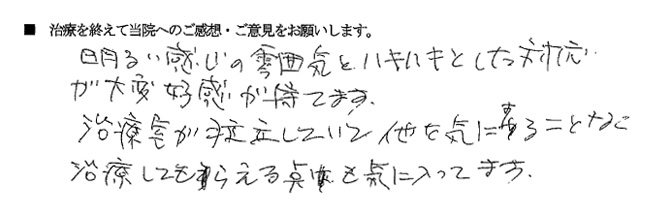 ■ 治療を終えて当院へのご感想・ご意見をお願いします。
明るい感じの雰囲気とハキハキとした対応
が大変好感が待てます。
治療室が独立していて他を気にすることなく
治療してもらえる点も気に入ってます。